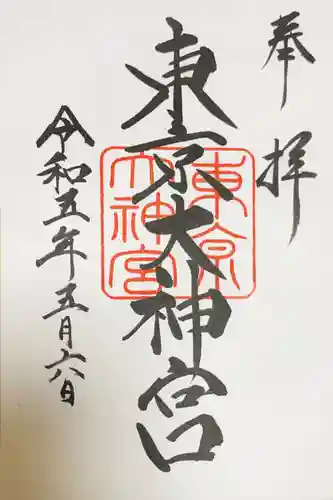 奉拝
東京大神宮
東京大神宮
令和五年五月六日